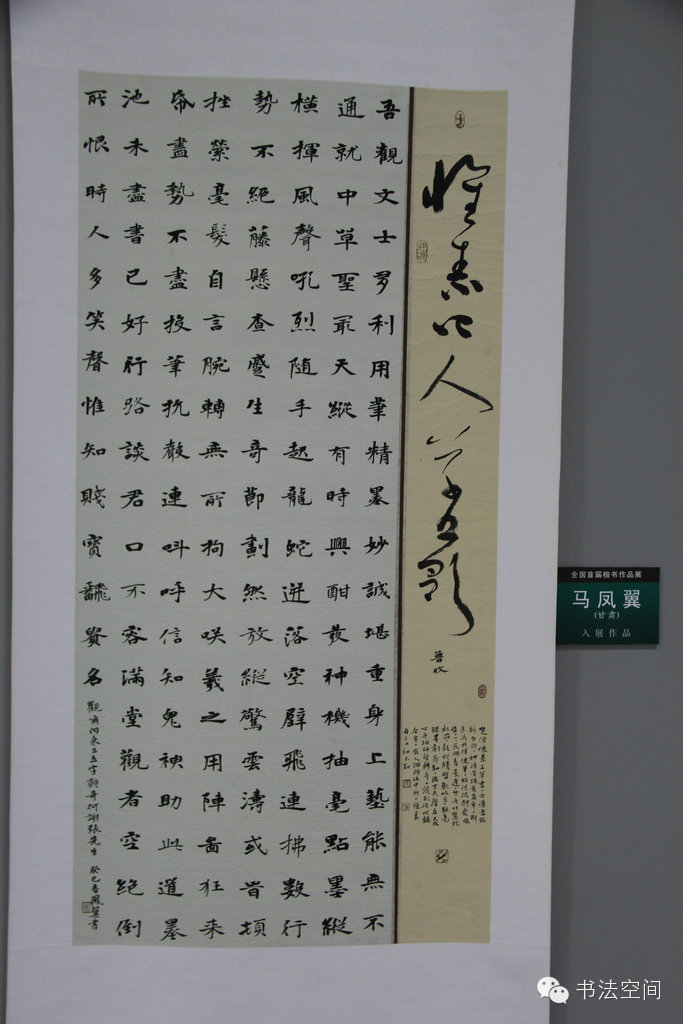 懷素上人草書歌
魯收
吾觀文士多利用筆精墨妙誠堪重身上藝能無不
通就中草聖最天縱有時興酣發神機抽毫點墨縱
橫揮風聲吼烈随手起龍蛇迸落空壁飛連拂數行
勢不絕藤懸查蹙生奇節劃然放縱驚雲濤或旹頓
挫縈毫髮自言腕轉無所拘大咲羲之用陣圖狂来
帋盡勢不盡投筆抗聲連叫呼信知鬼神助此道墨
池未盡書已好行路談君口不容滿堂觀者空絕倒
所恨時人多笑聲惟知賤實翻貴名
癸巳春鳳翼書
全国首届楷书作品展
马凤翼
(甘肃)
入展作品
书法空间